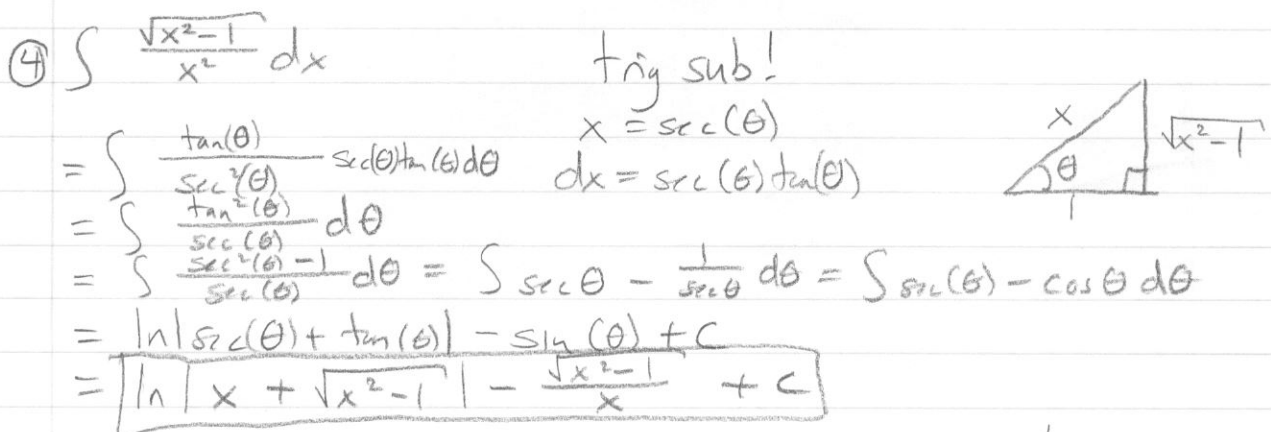 ④ ∫ √(x²-1) / x² dx trig sub!
x = sec(θ)
= ∫ tan(θ) / sec²(θ) sec(θ)tan(θ)dθ dx = sec(θ)tan(θ)
x √(x²-1) θ 1
= ∫ tan²(θ) / sec(θ) dθ
= ∫ (sec²(θ) - 1) / sec(θ) dθ = ∫ secθ - 1/secθ dθ = ∫ sec(θ) - cosθ dθ
= ln|sec(θ) + tan(θ)| - sin(θ) + C
= ln|x + √(x²-1)| - √(x²-1) / x + C